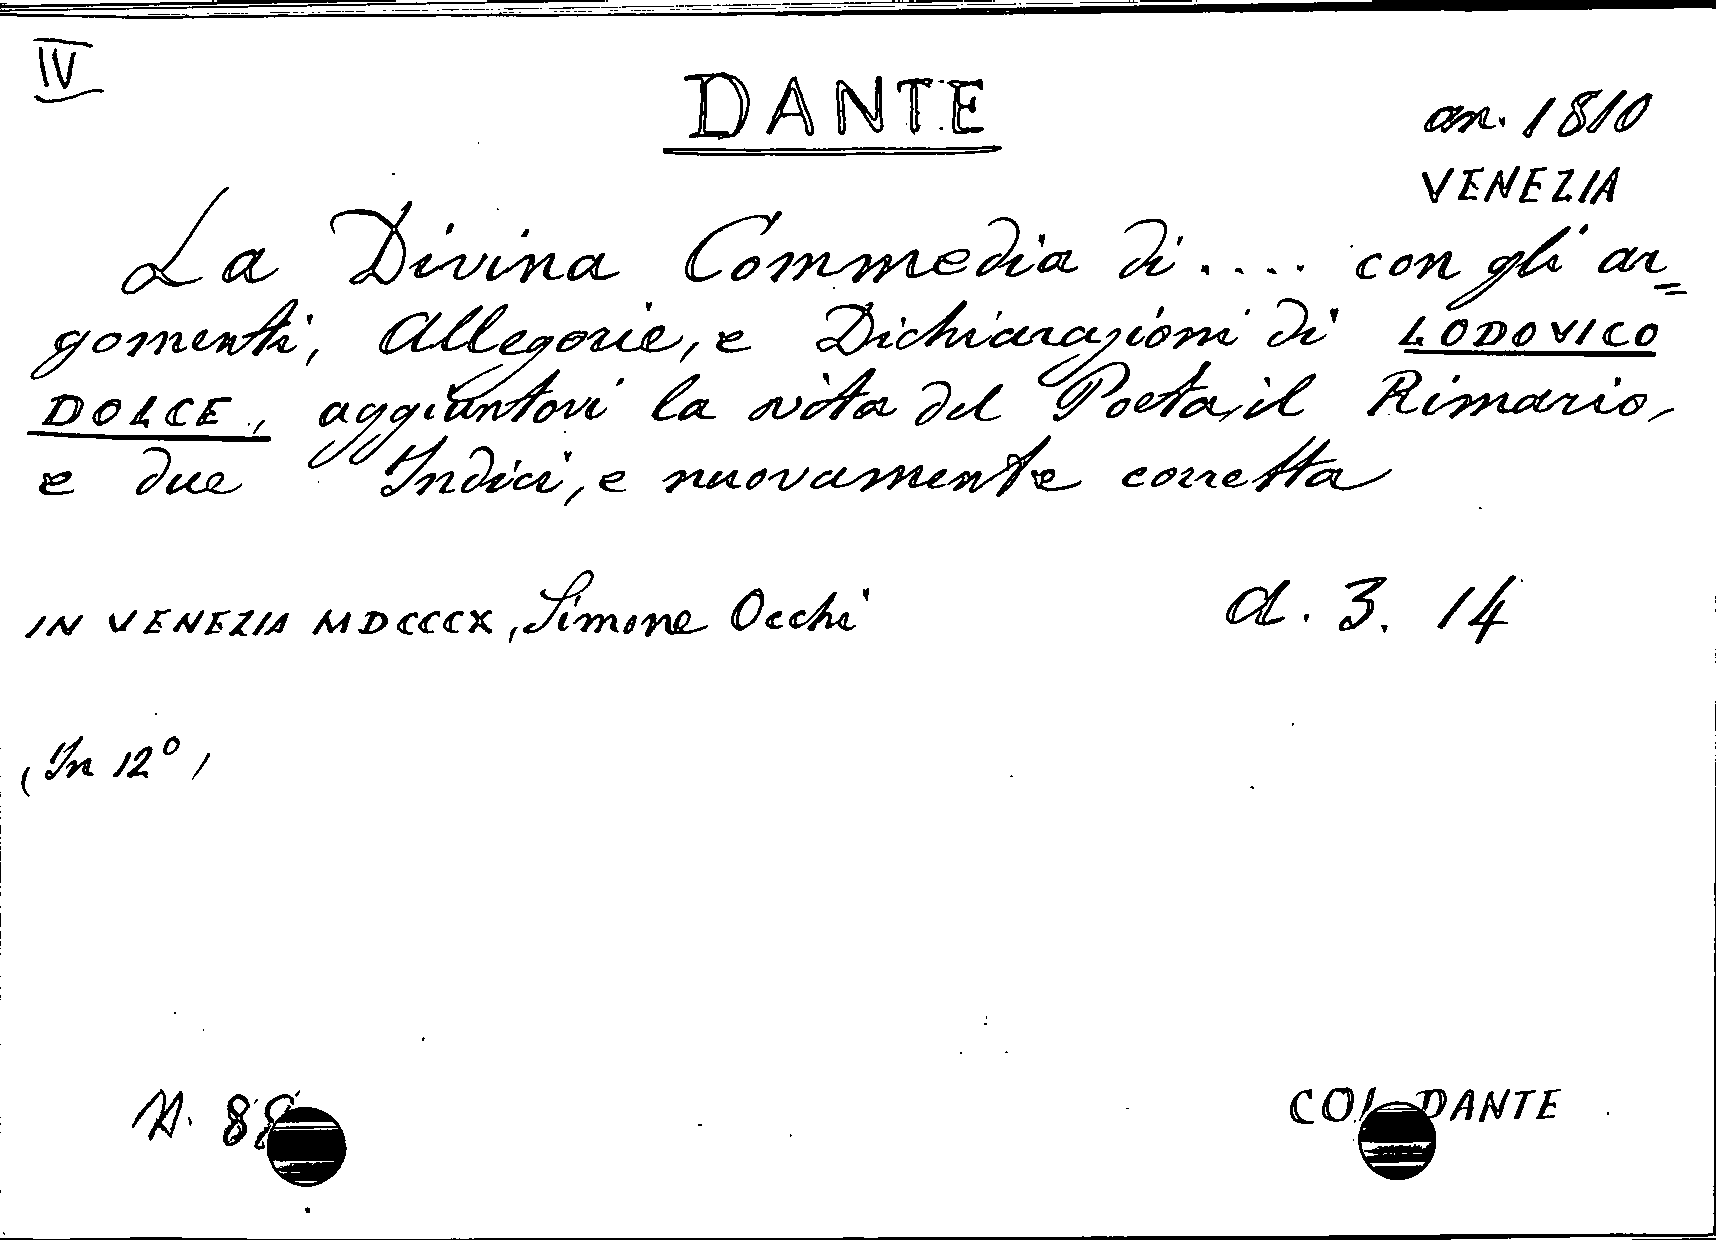 IV
DANTE
an. 1810
VENEZIA
La Divina Commedia di .... con gli ar=
gomenti, Allegorie, e Dichiarazioni di LODOVICO
DOLCE, aggiuntovi la vita del Poeta, il Rimario,
e due Indici, e nuovamente corretta
IN VENEZIA MDCCCX, Simone Occhi
d. 3. 14
(In 12°)
N.
COL DANTE